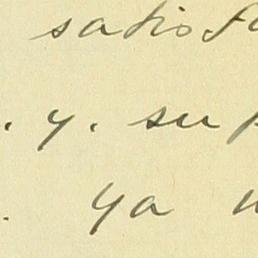 satisf
. y. su p
. ya